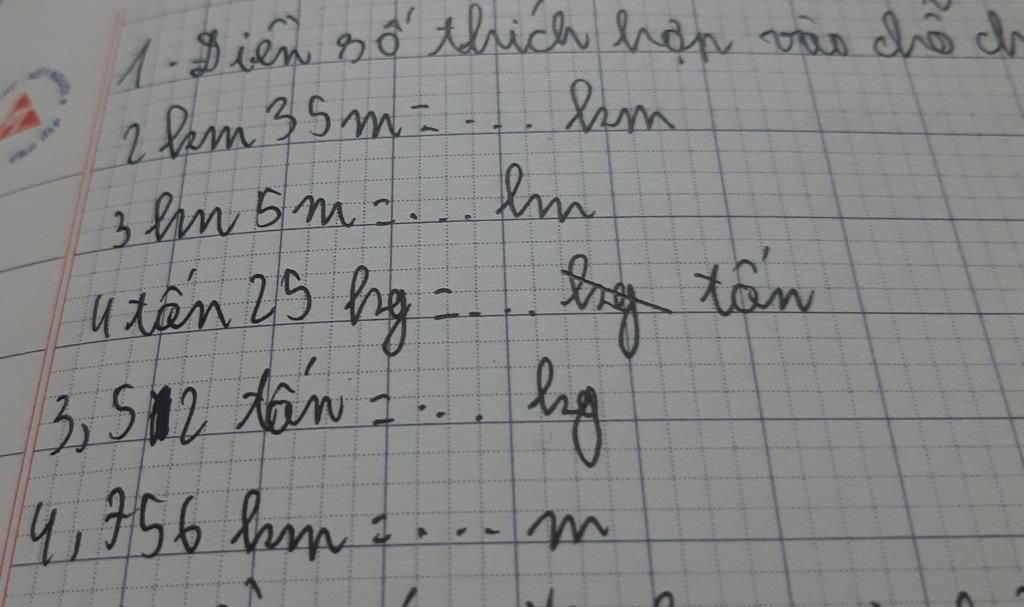 1. Điền số thích hợp vào chỗ ch
2 km 35 m = ... km
3 km 5 m = ... km
4 tấn 25 kg = ... kg tấn
3,512 tấn = ... kg
4,756 km = ... m